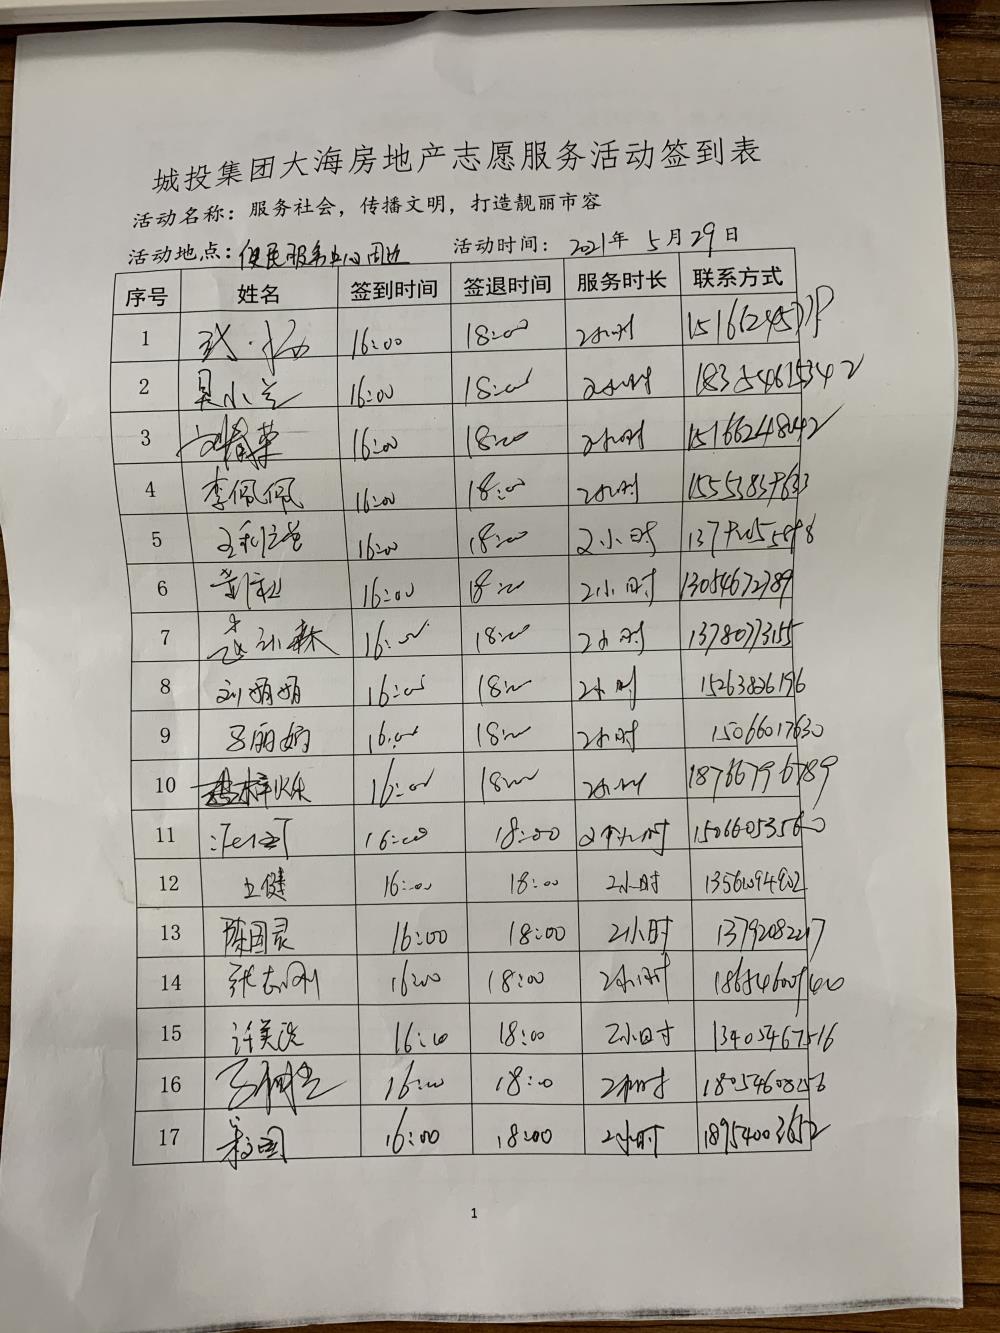 城投集团大海房地产志愿服务活动签到表
活动名称：服务社会，传播文明，打造靓丽市容
活动地点：便民服务中心周边 活动时间：2021年5月29日
序号 姓名 签到时间 签退时间 服务时长 联系方式
1 16:00 18:00 2小时
2 吴小兰 16:00 18:00 2小时 18354615342
3 16:00 18:00 2小时 15166248042
4 李佩佩 16:00 18:00 2小时
5 16:00 18:00 2小时
6 16:00 18:00 2小时 13054672789
7 16:00 18:00 2小时 13780773155
8 刘娟娟 16:00 18:00 2小时 15263826196
9 16:00 18:00 2小时 15066017630
10 16:00 18:00 2小时 18766796789
11 16:00 18:00 2小时
12 王健 16:00 18:00 2小时
13 陈国灵 16:00 18:00 2小时 13792082217
14 张志刚 16:00 18:00 2小时
15 许美洁 16:00 18:00 2小时 13405467516
16 16:00 18:00 2小时 18054608256
17 16:00 18:00 2小时 18954003652
1